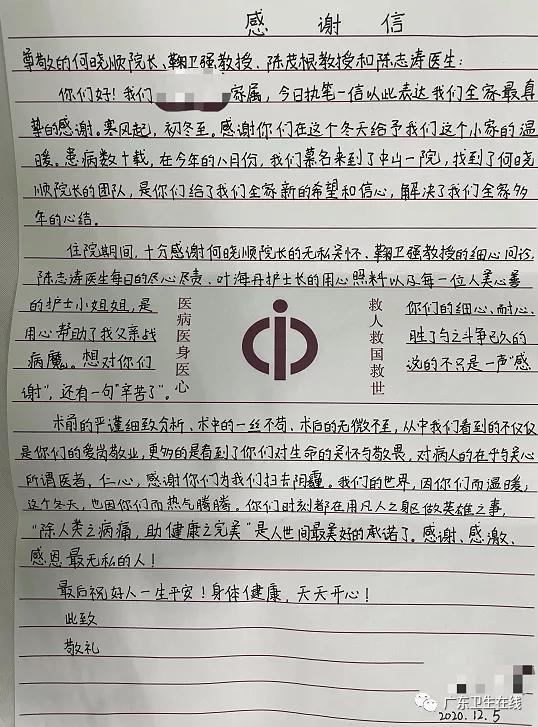 感谢信
尊敬的何晓顺院长、鞠卫强教授、陈茂根教授和陈志涛医生：
你们好！我们 家属，今日执笔一信以此表达我们全家最真
挚的感谢。寒风起，初冬至。感谢你们在这个冬天给予我们这个小家的温
暖。患病数十载，在今年的八月份，我们慕名来到了中山一院，找到了何晓
顺院长的团队，是你们给了我们全家新的希望和信心，解决了我们全家多
年的心结。
住院期间，十分感谢何晓顺院长的无私关怀、鞠卫强教授的细心问诊、
陈志涛医生每日的尽心尽责、叶海丹护士长的用心照料以及每一位人美心善
的护士小姐姐，是 你们的细心、耐心、
用心帮助了我父亲战 胜了与之斗争已久的
病魔。想对你们 说的不只是一声“感
谢”，还有一句“辛苦了”。
医病医身医心
救人救国救世
术前的严谨细致分析、术中的一丝不苟、术后的无微不至，从中我们看到的不仅仅
是你们的爱岗敬业，更多的是看到了你们对生命的关怀与敬畏，对病人的在乎与关心
所谓医者，仁心，感谢你们为我们扫去阴霾。我们的世界，因你们而温暖，
这个冬天，也因你们而热气腾腾。你们时刻都在用凡人之躯做英雄之事，
“除人类之病痛，助健康之完美”是人世间最美好的承诺了。感谢、感激、
感恩最无私的人！
最后祝好人一生平安！身体健康，天天开心！
此致
敬礼
广东卫生在线
2020.12.5